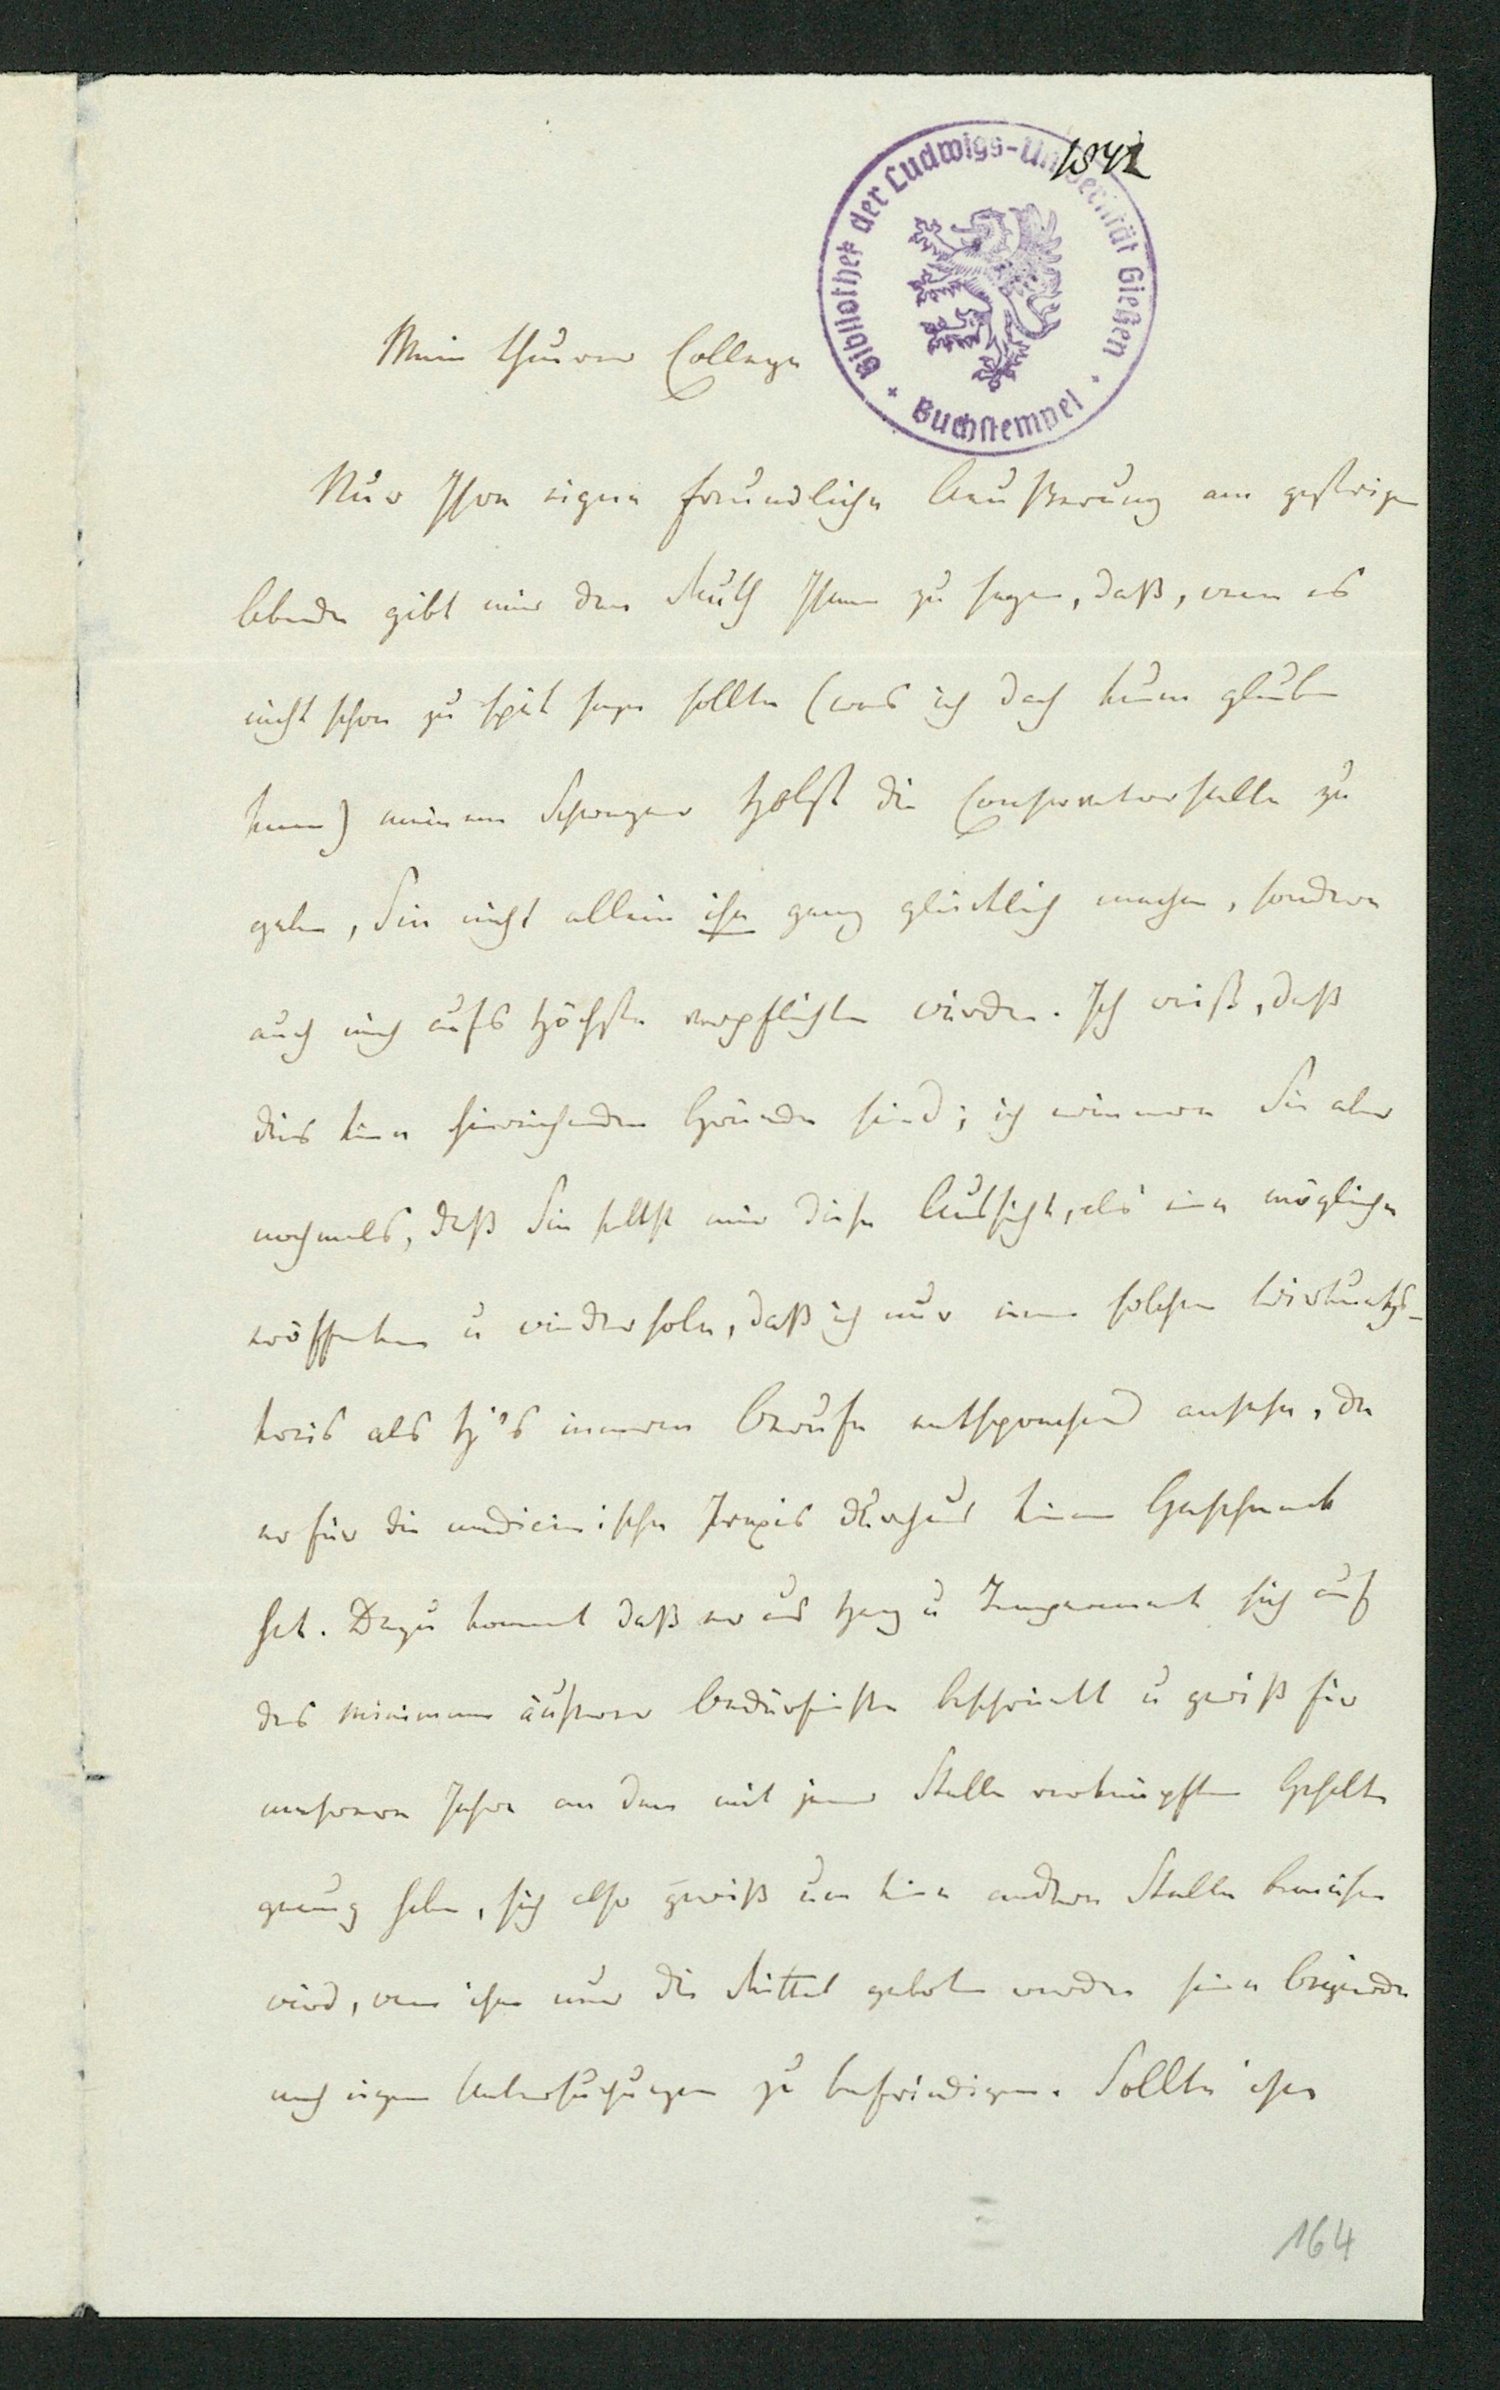 1842
Bibliothek der Ludwigs-Universität Gießen
Buchstempel
Mein theurer College
Nur Ihre eigene freundliche Aeußerung am gestrigen
Abende gibt mir den Muth Ihnen zu sagen, daß, wenn es
nicht schon zu spät seyn sollte (was ich doch kaum glauben
kann) meinem Schwager Holst die Conservatorstelle zu
geben, Sie nicht allein ihn ganz glücklich machen, sondern
auch mich aufs Höchste verpflichten würden. Ich weiß, daß
dies keine hinreichenden Gründe sind; ich erinnere Sie aber
nochmals, daß Sie selbst mir diese Aussicht, als eine mögliche
eröffneten u wiederhole, daß ich nur einen solchen Wirkungs-
kreis als H's innerem Berufe entsprechend ansehe, da
er für die medicinische Praxis durchaus keinen Geschmack
hat. Dazu kommt daß er aus Hang u Temperament sich auf
das Minimum äußerer Bedürfnisse beschränkt u gewiß für
mehrere Jahre an dem mit jener Stelle verknüpften Gehalte
genug haben, sich also gewiß um keine andere Stelle bemühen
wird, wenn ihm nur die Mittel geboten werden seine Begierde
nach eigenen Untersuchungen zu befriedigen. Sollte ihm
164